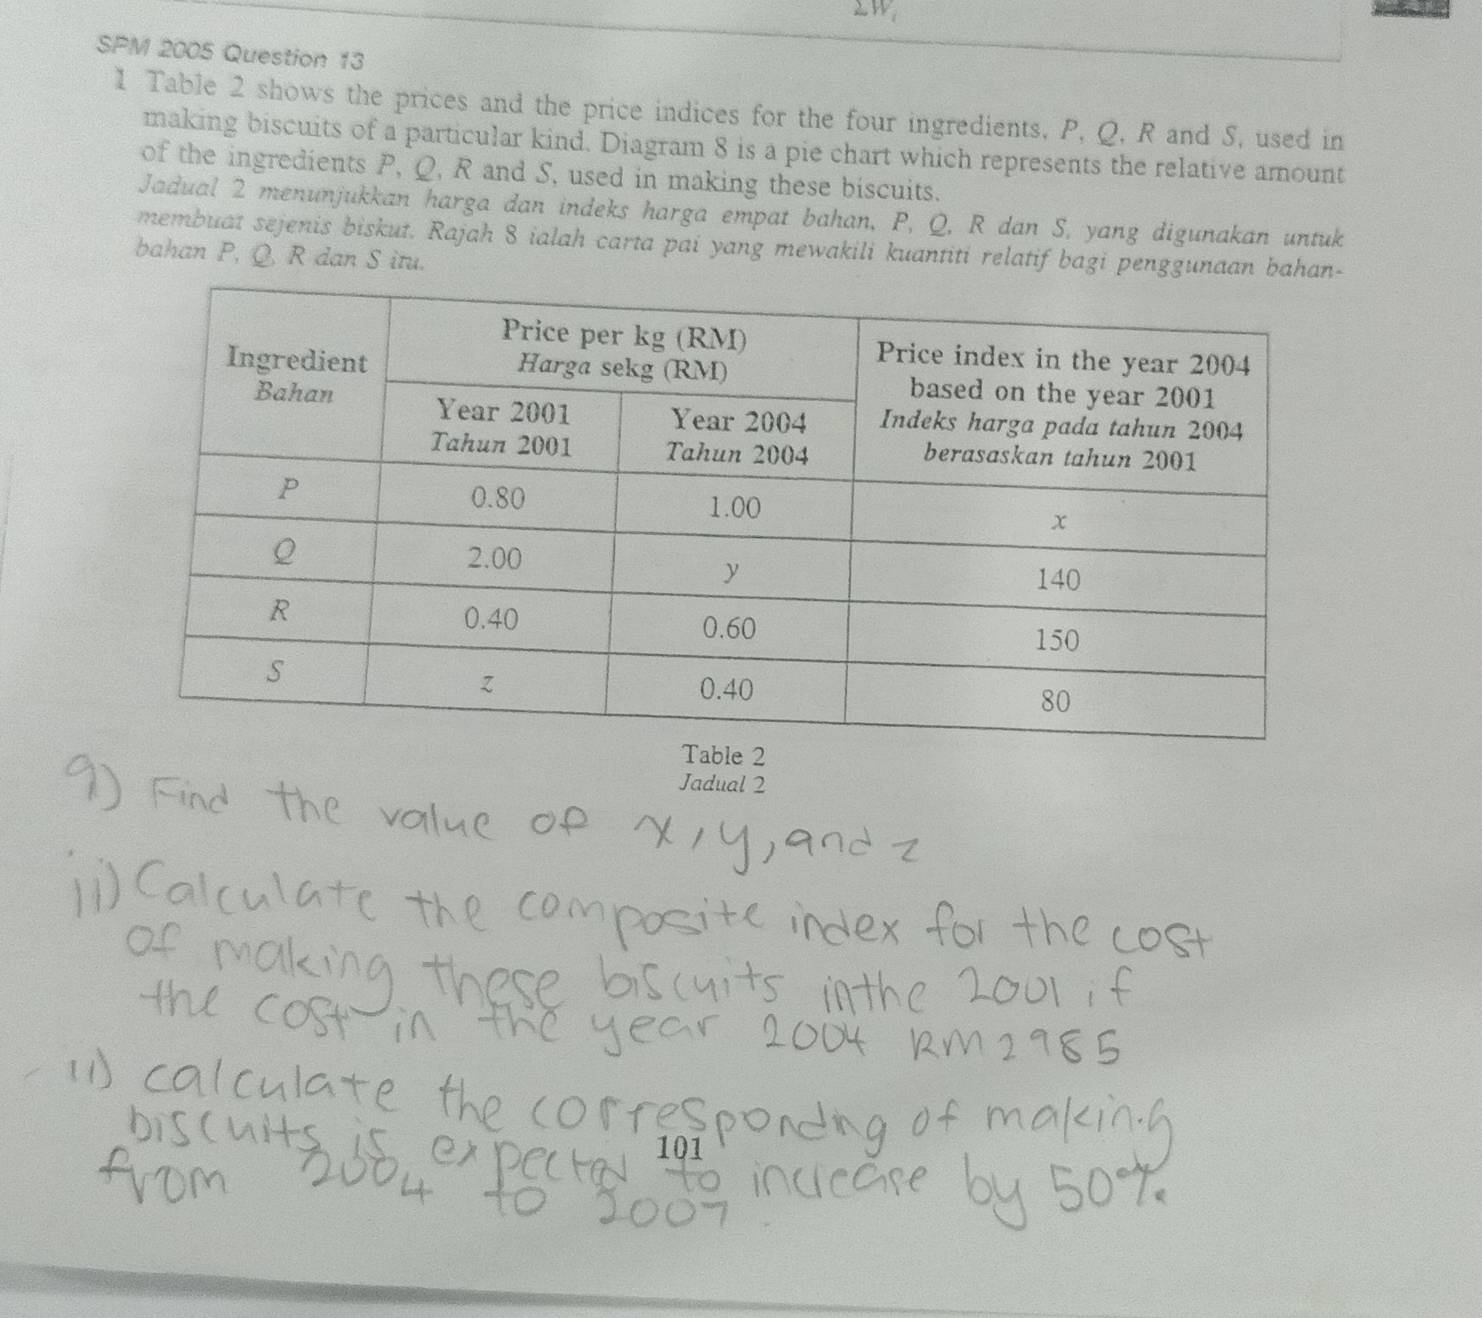 ΣWᵢ
SPM 2005 Question 13
1 Table 2 shows the prices and the price indices for the four ingredients, P, Q, R and S, used in
making biscuits of a particular kind. Diagram 8 is a pie chart which represents the relative amount
of the ingredients P, Q, R and S, used in making these biscuits.
Jadual 2 menunjukkan harga dan indeks harga empat bahan, P, Q, R dan S, yang digunakan untuk
membuat sejenis biskut. Rajah 8 ialah carta pai yang mewakili kuantiti relatif bagi penggunaan bahan-
bahan P, Q, R dan S itu.
Ingredient
Bahan
Price per kg (RM)
Harga sekg (RM)
Price index in the year 2004
based on the year 2001
Indeks harga pada tahun 2004
berasaskan tahun 2001
Year 2001
Tahun 2001
Year 2004
Tahun 2004
P 0.80 1.00 x
Q 2.00 y 140
R 0.40 0.60 150
S z 0.40 80
Table 2
Jadual 2
9) Find the value of x, y, and z
ii) Calculate the composite index for the cost
of making these biscuits inthe 2001 if
the cost in the year 2004 RM2985
ii) calculate the correspondng of making
biscuits is expected to increase by 50%
from 2004 to 2007.
101